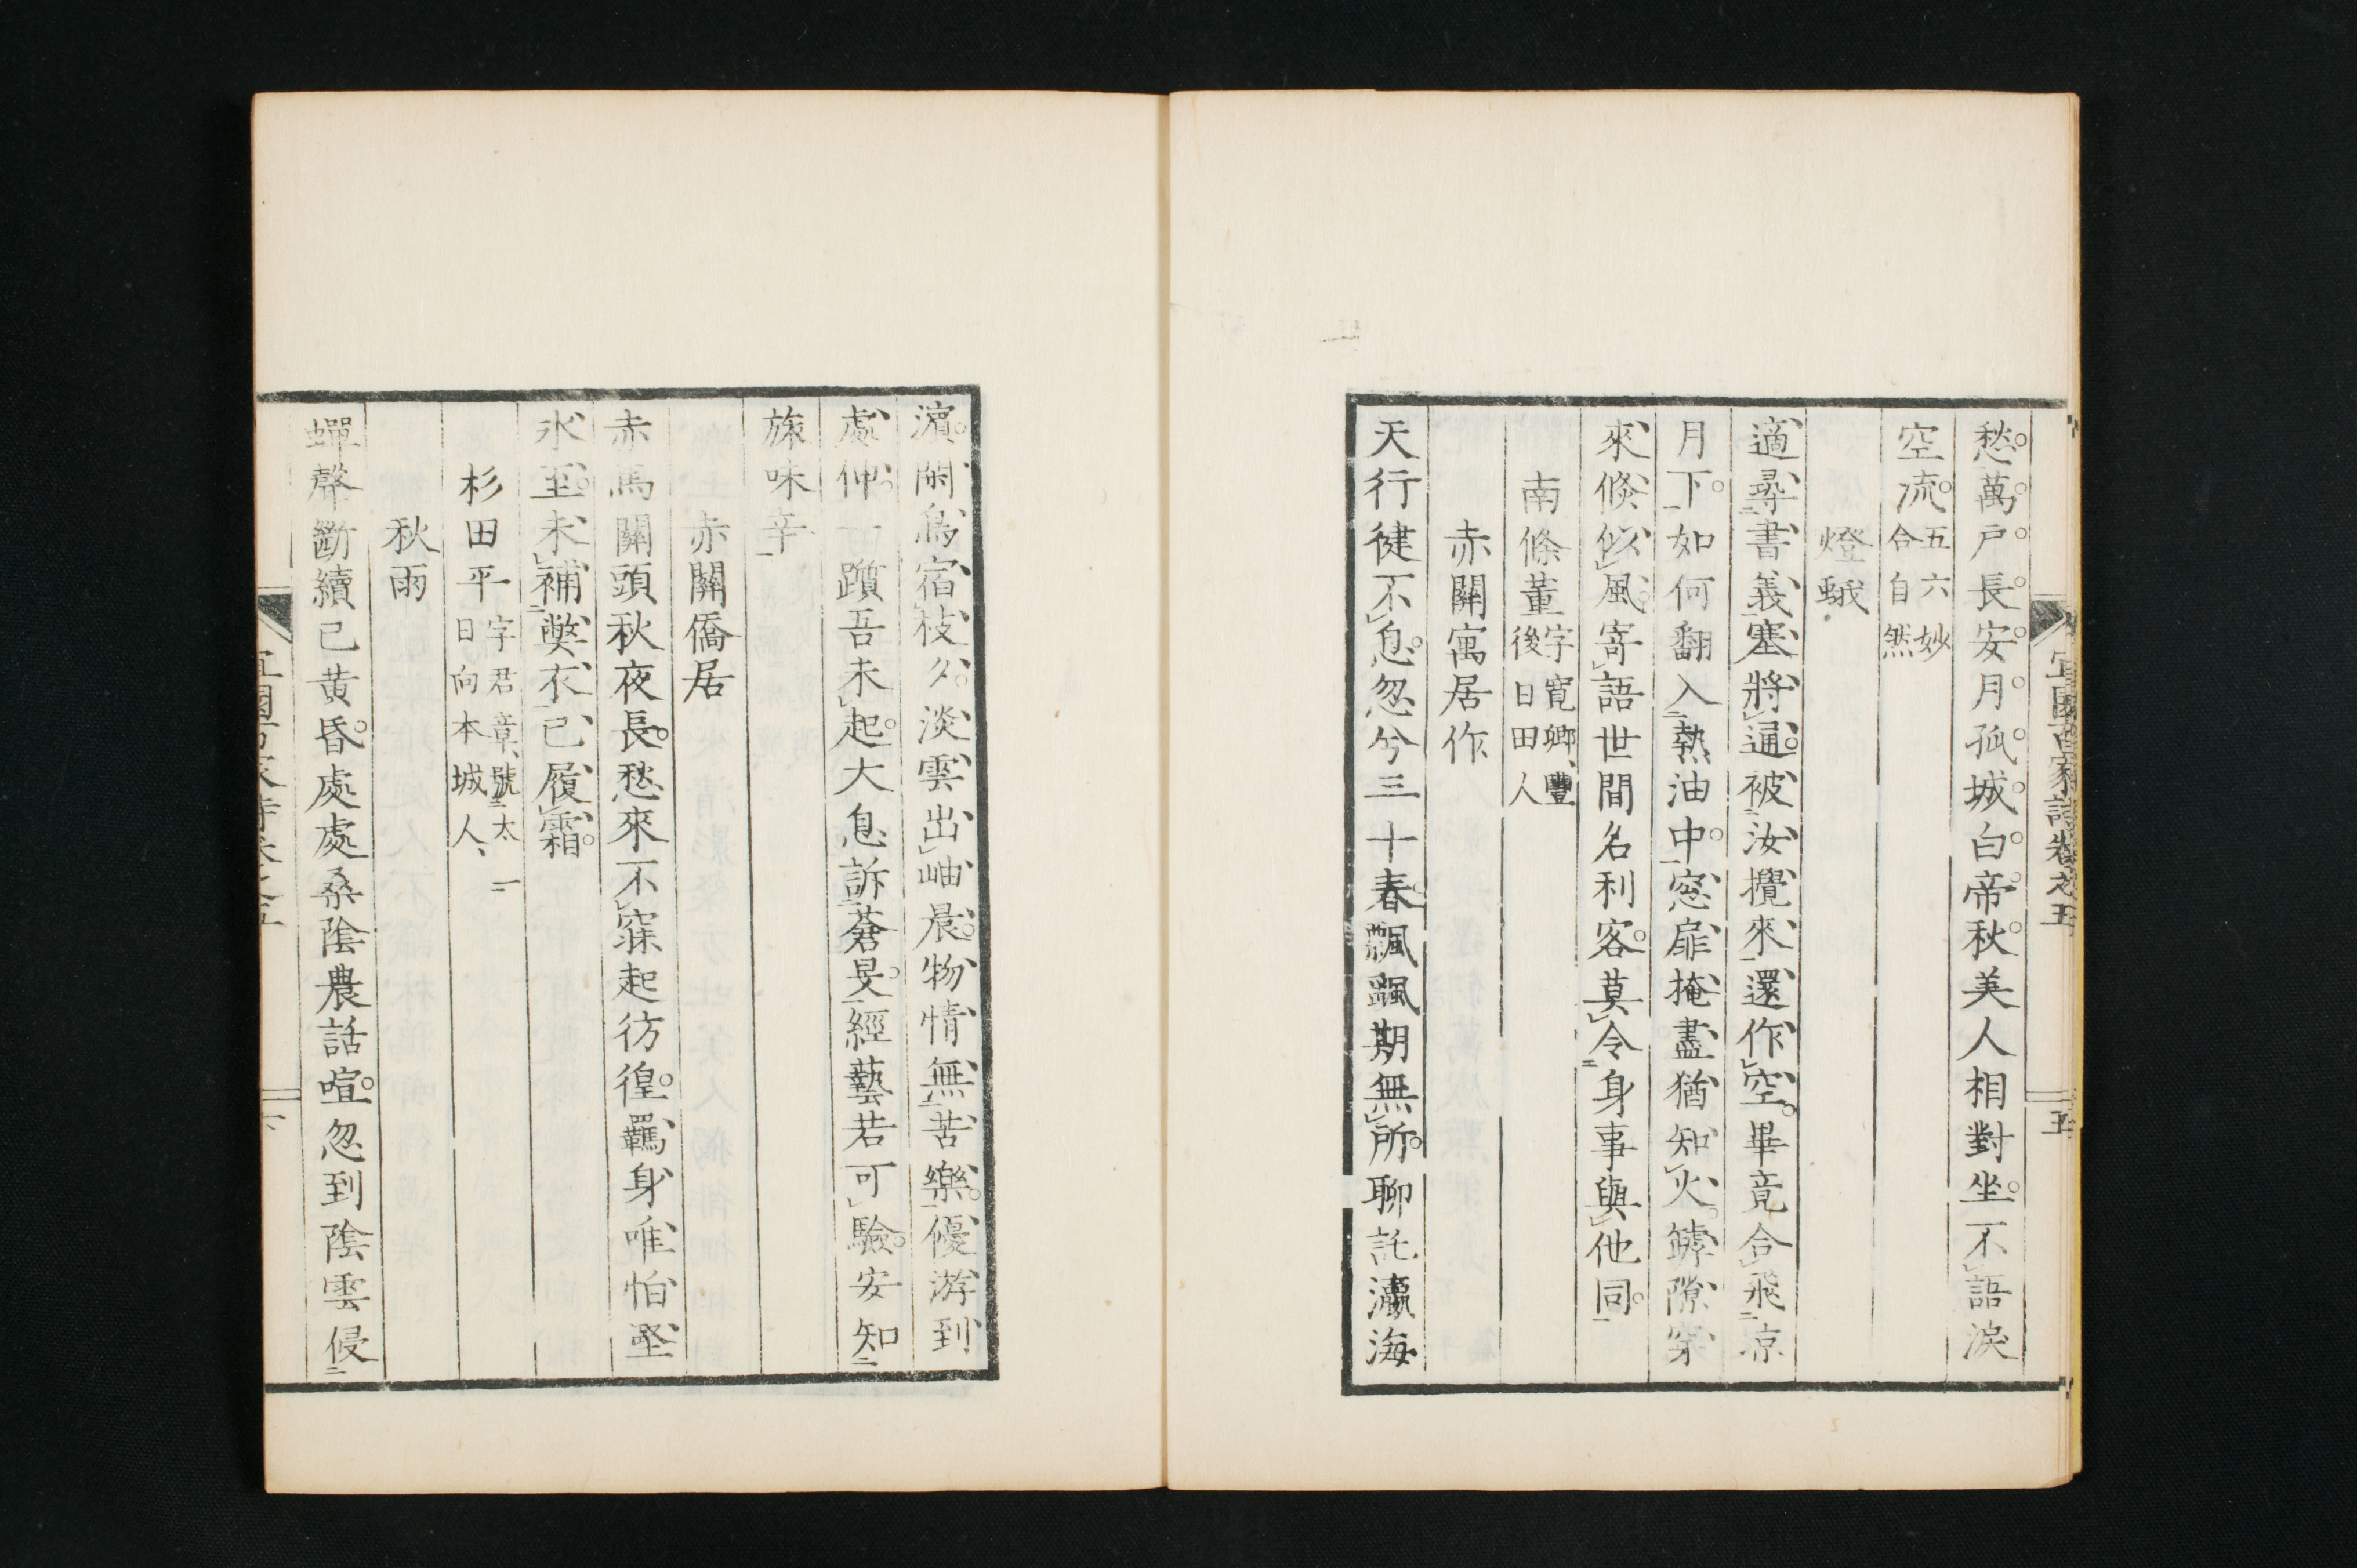 宜園百家詩卷之五
五
愁萬戶長安月孤城白帝秋美人相對坐不語淚
空流五六妙合自然
燈蛾
適尋書義塞將通被汝攪來還作空畢竟合飛涼
月下如何翻入熱油中窓扉掩盡猶知火罅隙穿
來倐似風寄語世間名利客莫令身事與他同
南條董字寬卿豐後日田人
赤關寓居作
天行健不息忽兮三十春飄飄期無所聊託瀛海
濵閑鳥宿枝夕淡雲出岫晨物情無苦樂優游到
處伸一躓吾未起大息訴蒼旻經藝若可驗安知
旅味辛
赤關僑居
赤馬關頭秋夜長愁來不寐起彷徨羈身唯怕堅
氷至未補獘衣已履霜
杉田平字君章號太一日向本城人
秋雨
蟬聲斷續已黄昏處處桑陰農話喧忽到陰雲侵